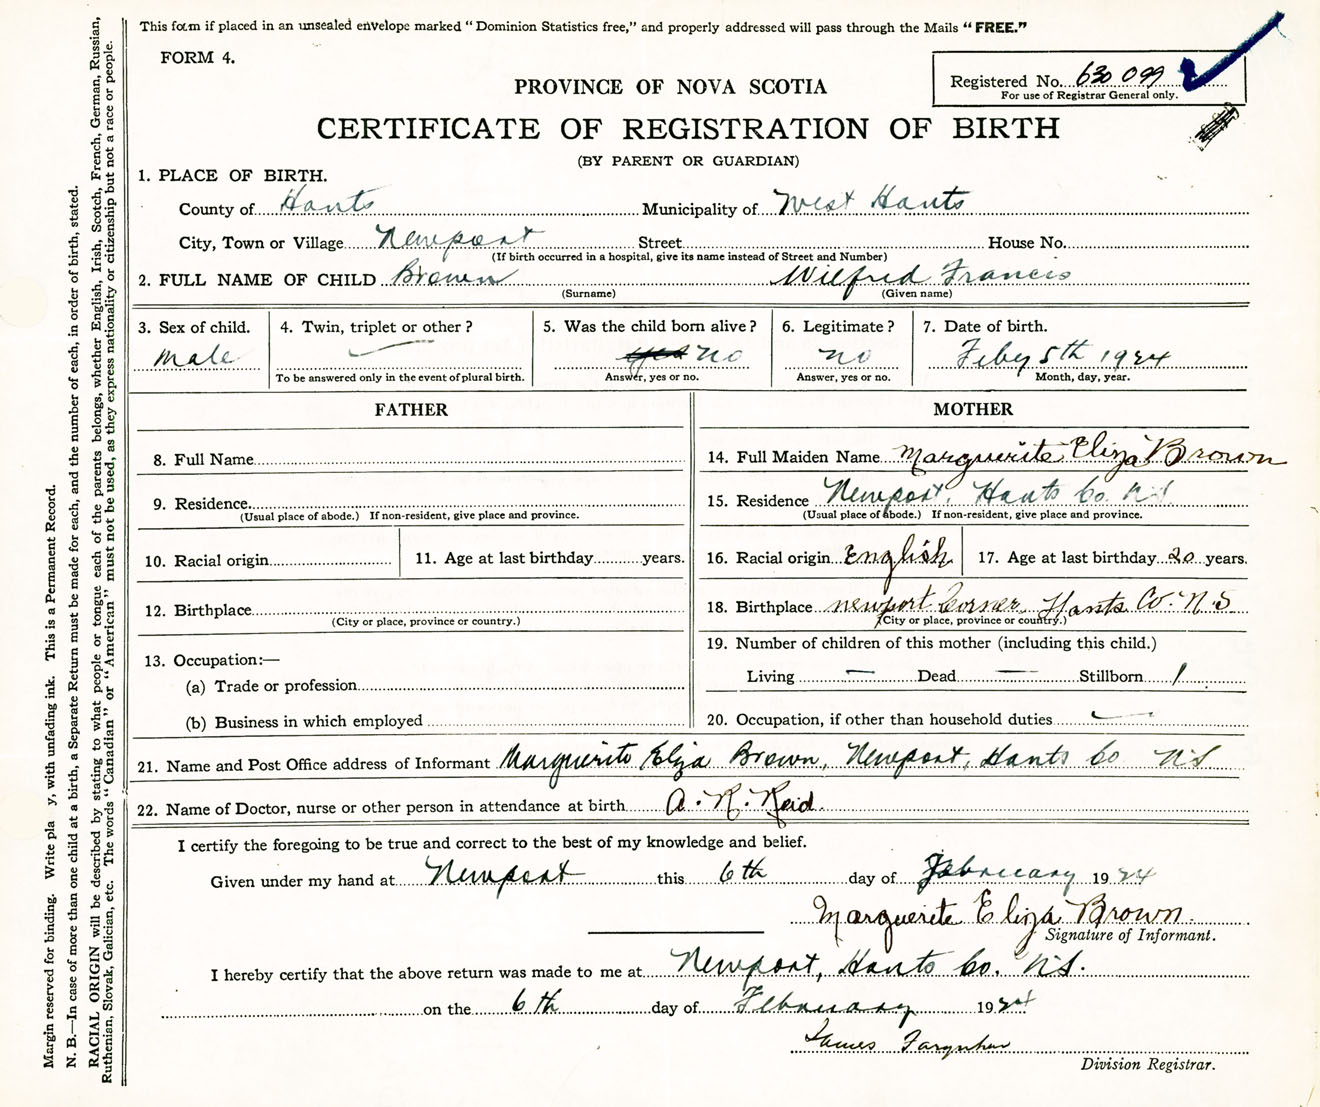 This form if placed in an unsealed envelope marked "Dominion Statistics free," and properly addressed will pass through the Mails "FREE."
FORM 4.
Registered No. 630 099
For use of Registrar General only.
PROVINCE OF NOVA SCOTIA
CERTIFICATE OF REGISTRATION OF BIRTH
(BY PARENT OR GUARDIAN)
1. PLACE OF BIRTH.
County of Hants Municipality of West Hants
City, Town or Village Newport Street House No.
(If birth occurred in a hospital, give its name instead of Street and Number)
2. FULL NAME OF CHILD Brown Wilfred Francis
(Surname) (Given name)
3. Sex of child. 4. Twin, triplet or other? 5. Was the child born alive? 6. Legitimate? 7. Date of birth.
Male yes no no Feby 5th 1924
To be answered only in the event of plural birth. Answer, yes or no. Answer, yes or no. Month, day, year.
FATHER MOTHER
8. Full Name 14. Full Maiden Name Marguerite Eliza Brown
9. Residence 15. Residence Newport, Hants Co. N.S.
(Usual place of abode.) If non-resident, give place and province. (Usual place of abode.) If non-resident, give place and province.
10. Racial origin 11. Age at last birthday years. 16. Racial origin English 17. Age at last birthday 20 years.
12. Birthplace 18. Birthplace Newport Corner, Hants Co. N.S
(City or place, province or country.) (City or place, province or country.)
13. Occupation:— 19. Number of children of this mother (including this child.)
(a) Trade or profession Living — Dead — Stillborn 1
(b) Business in which employed 20. Occupation, if other than household duties
21. Name and Post Office address of Informant Marguerite Eliza Brown, Newport, Hants Co N.S
22. Name of Doctor, nurse or other person in attendance at birth A. R. Reid.
I certify the foregoing to be true and correct to the best of my knowledge and belief.
Given under my hand at Newport this 6th day of February 1924
Marguerite Eliza Brown
Signature of Informant.
I hereby certify that the above return was made to me at Newport, Hants Co. N.S.
on the 6th day of February 1924
James
Division Registrar.
Margin reserved for binding. Write pla y, with unfading ink. This is a Permanent Record.
N. B.—In case of more than one child at a birth, a Separate Return must be made for each, and the number of each, in order of birth, stated.
RACIAL ORIGIN will be described by stating to what people or tongue each of the parents belongs, whether English, Irish, Scotch, French, German, Russian,
Ruthenian, Slovak, Galician, etc. The words "Canadian" or "American" must not be used, as they express nationality or citizenship but not a race or people.